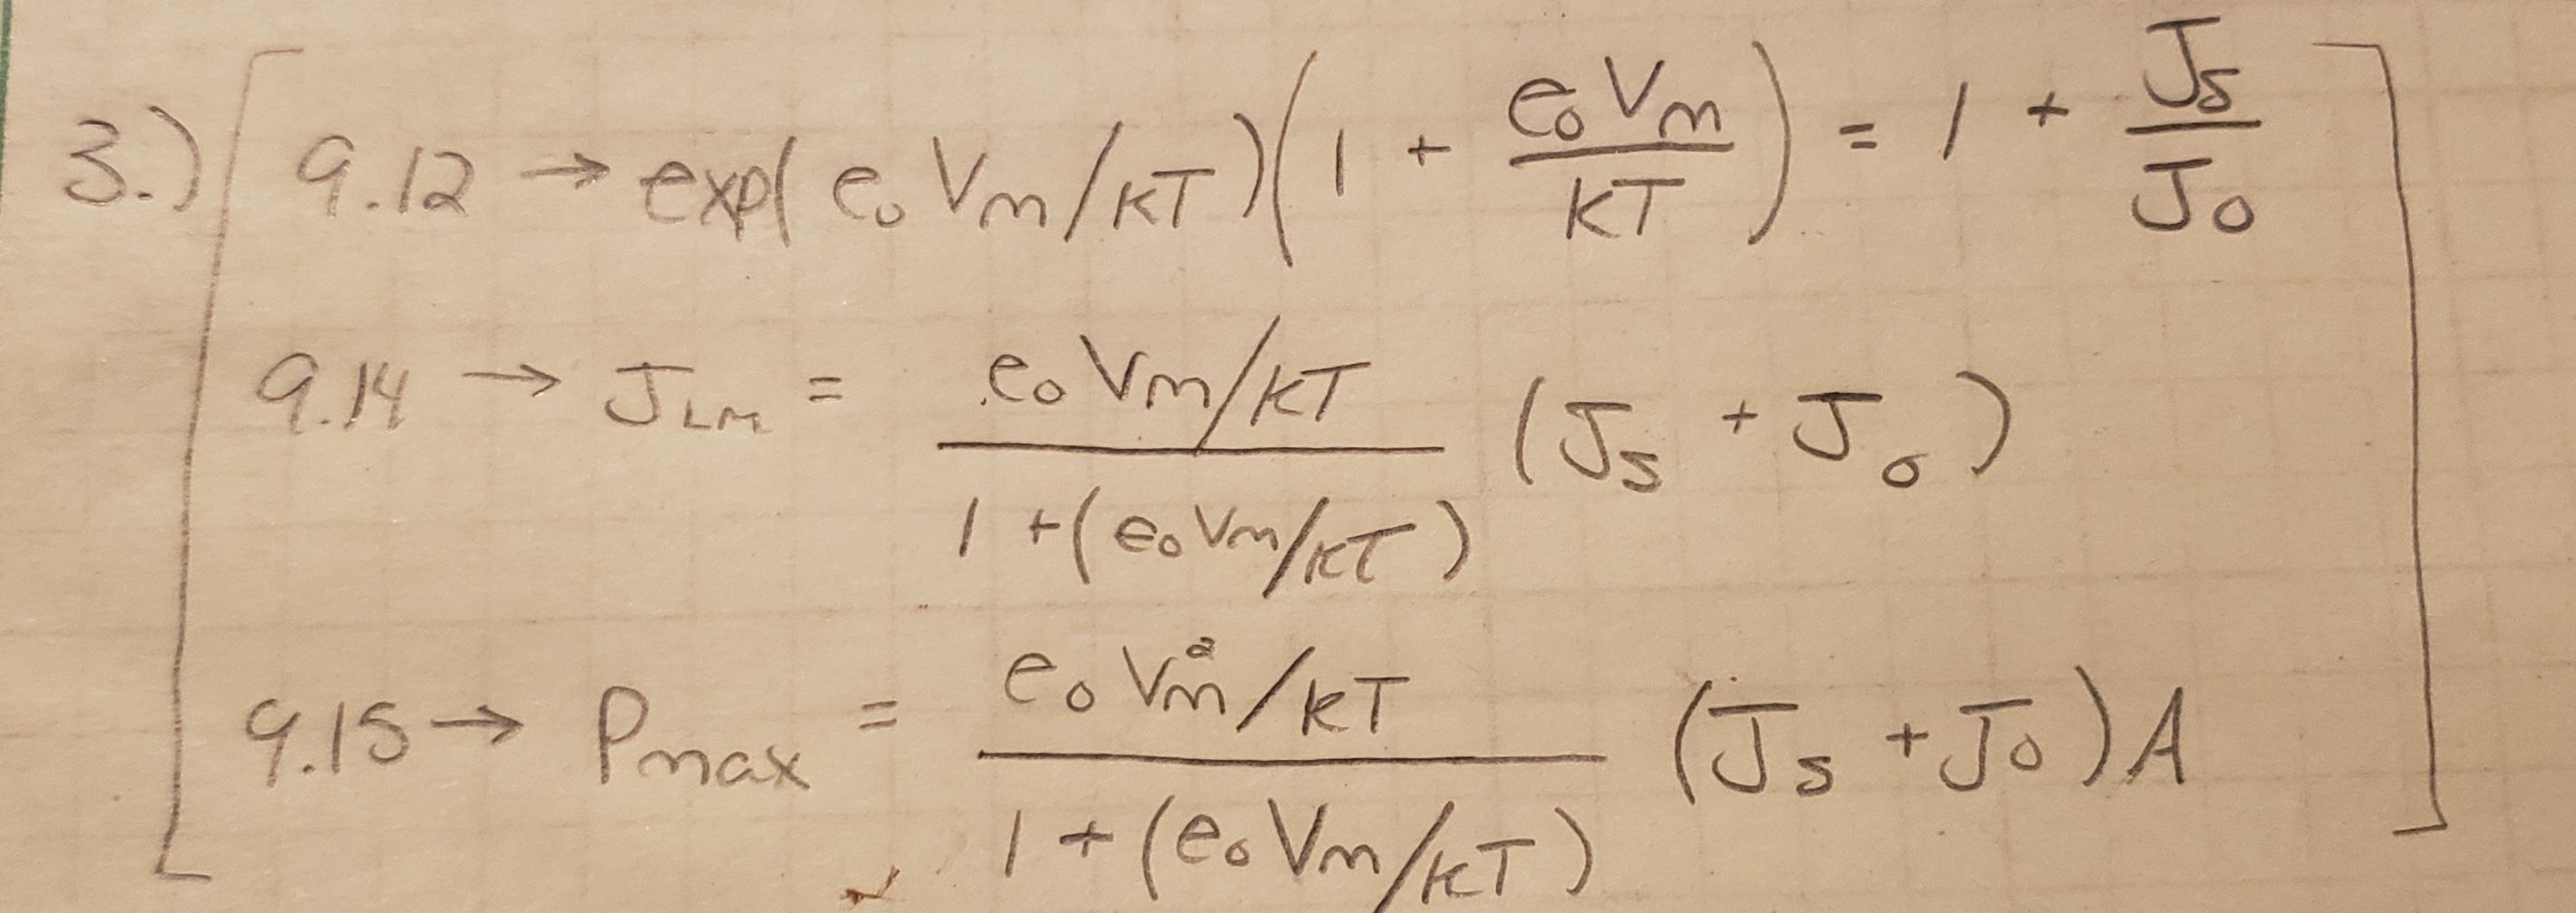 3.) 9.12 → exp(e₀Vm/kT)(1 + e₀Vm/kT) = 1 + Js/J₀
9.14 → JLm = (e₀Vm/kT)/(1 + (e₀Vm/kT)) (Js + J₀)
9.15 → Pmax = (e₀Vm²/kT)/(1 + (e₀Vm/kT)) (Js + J₀)A